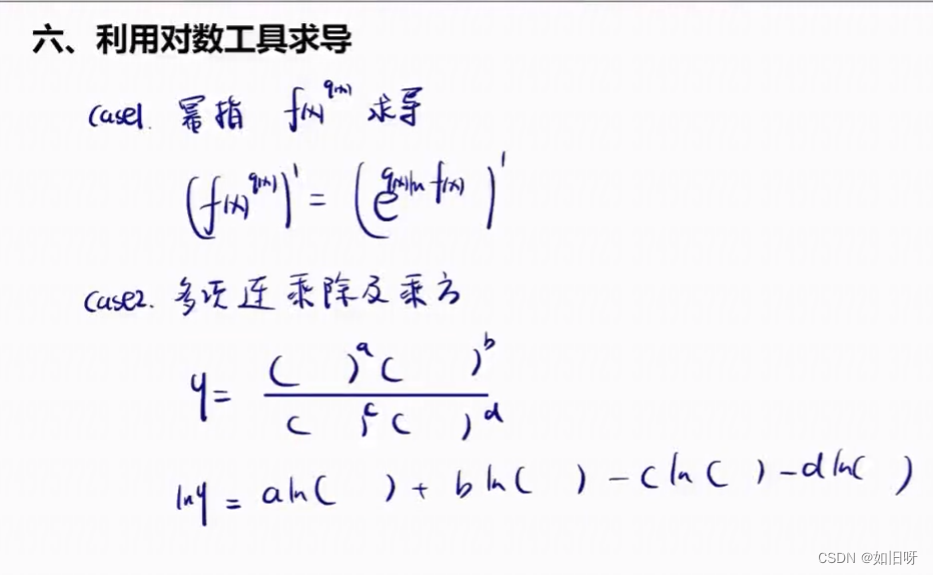 六、利用对数工具求导
case1. 幂指 f(x)^g(x) 求导
(f(x)^g(x))' = (e^g(x)ln f(x))'
case2. 多项连乘除及乘方
y = ( )^a ( )^b
( )^c ( )^d
lny = aln( ) + bln( ) - cln( ) - dln( )
CSDN @如旧呀